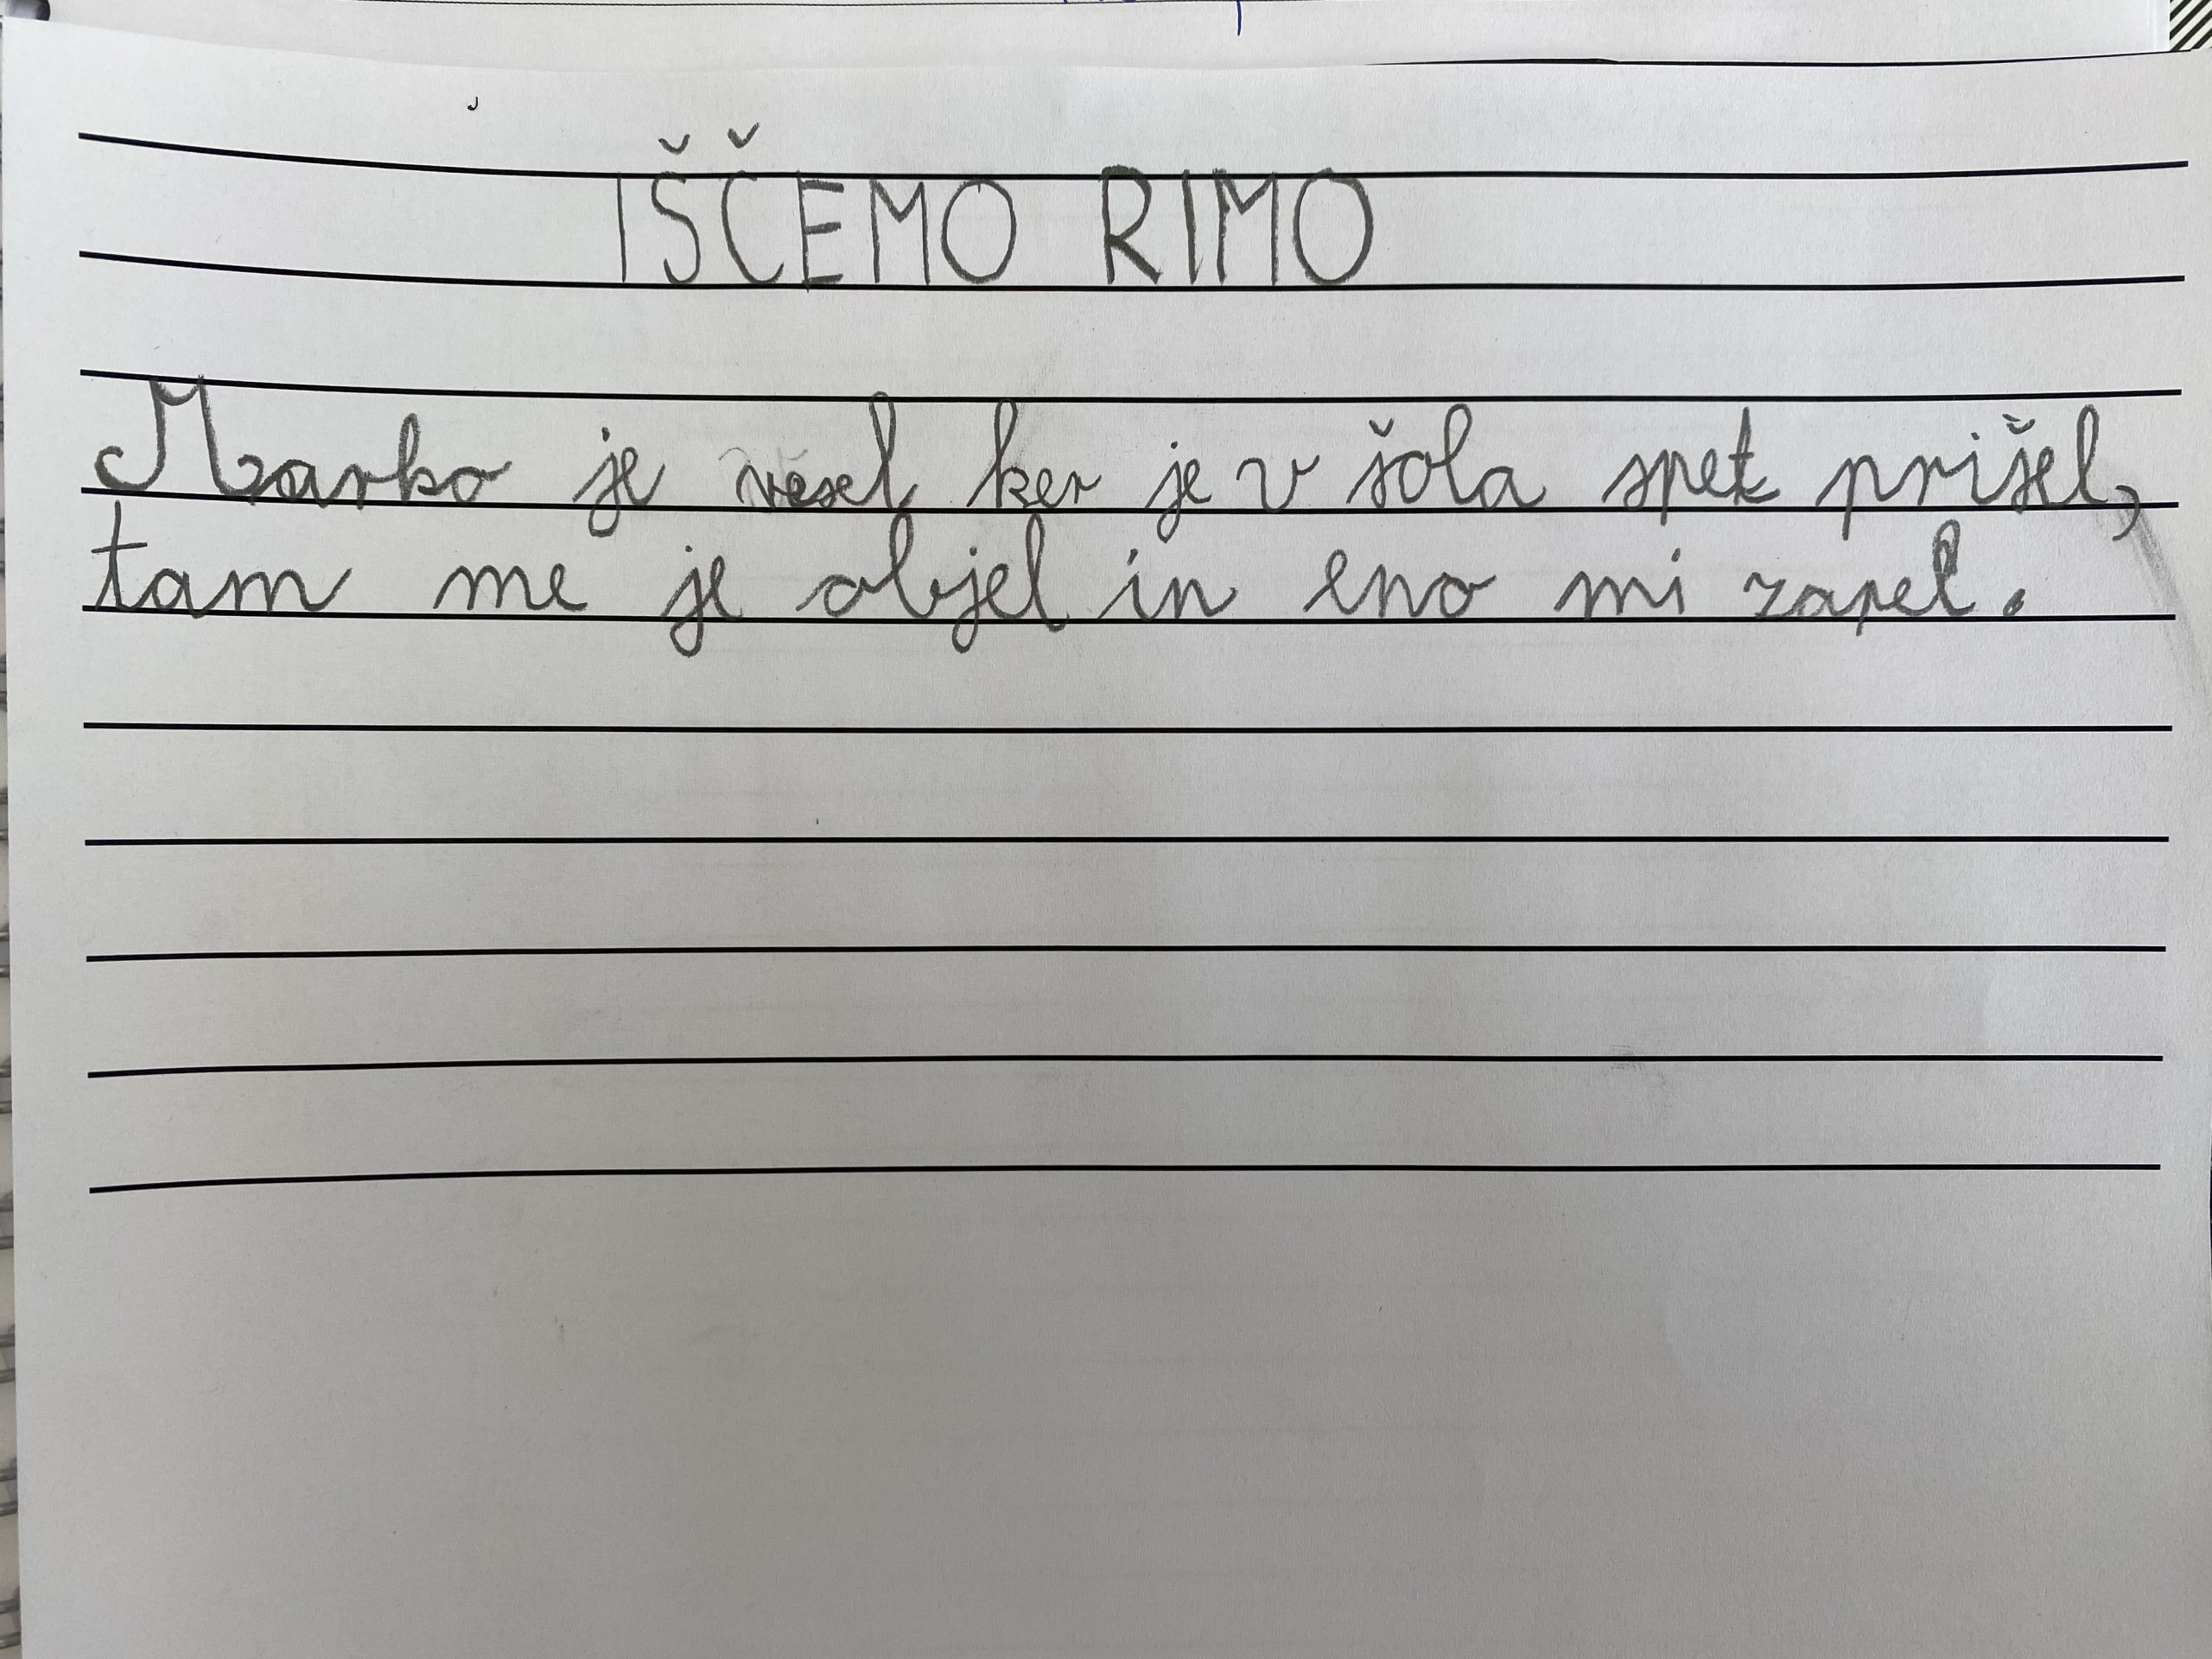 IŠČEMO RIMO
Marko je vesel ker je v šola spet prišel,
tam me je objel in eno mi zapel.